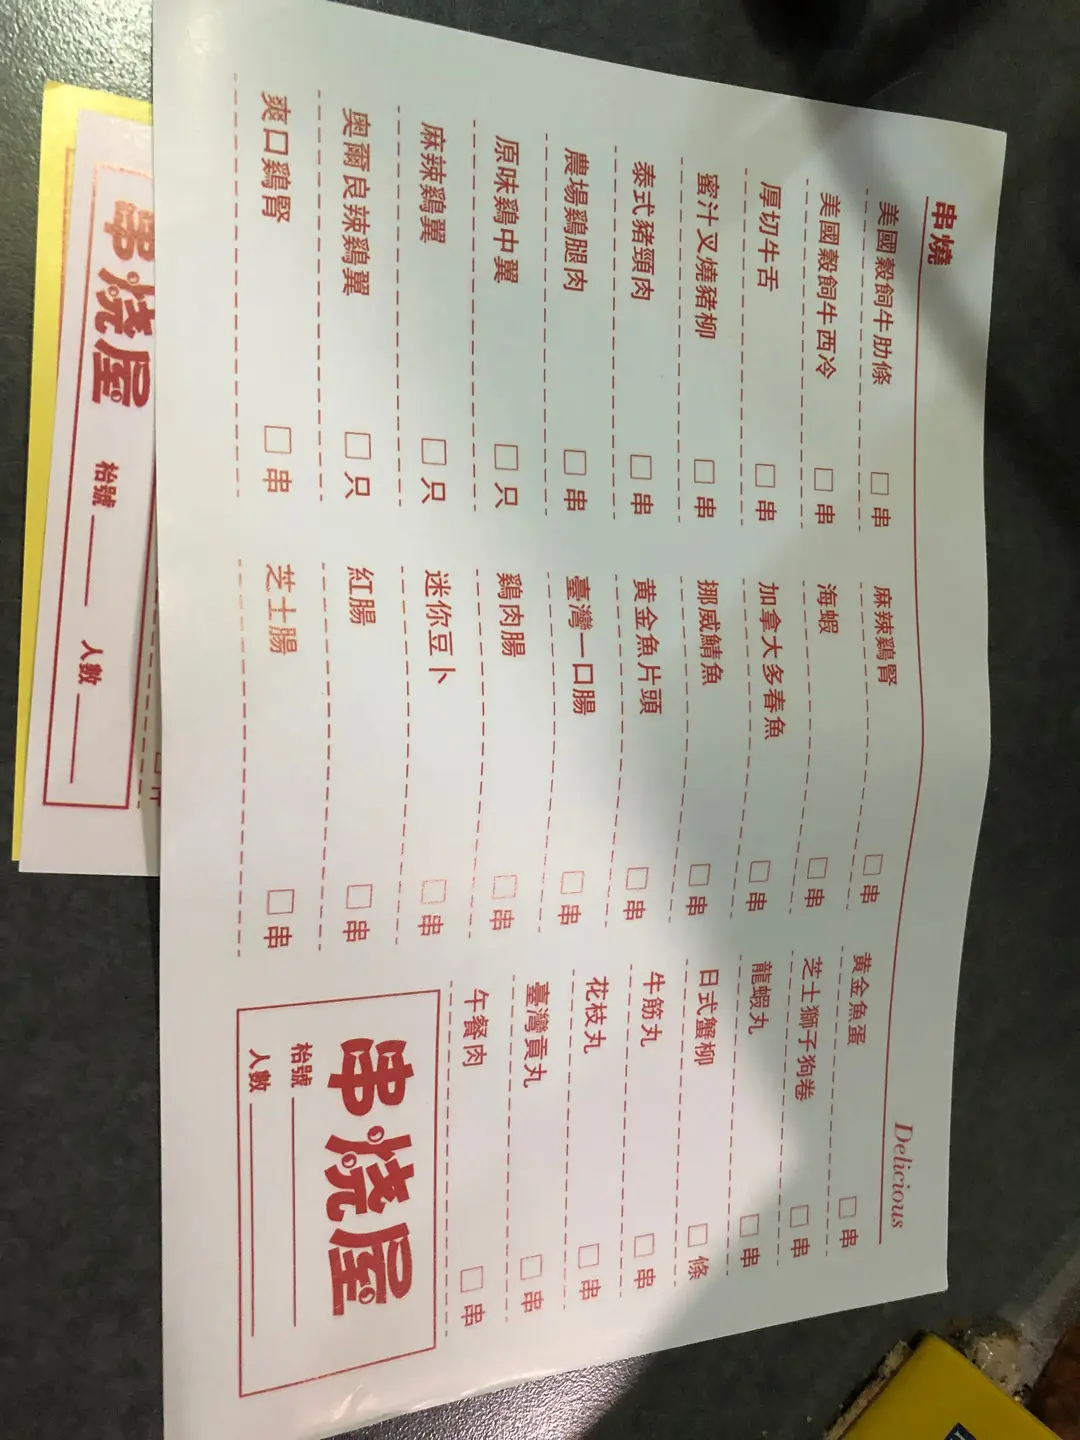 串燒
Delicious
美國穀飼牛肋條 □串
美國穀飼牛西冷 □串
厚切牛舌 □串
蜜汁叉燒豬柳 □串
泰式豬頸肉 □串
農場鷄腿肉 □串
原味鷄中翼 □只
麻辣鷄翼 □只
奥爾良辣鷄翼 □只
爽口鷄腎 □串
麻辣鷄腎 □串
海蝦 □串
加拿大多春魚 □串
挪威鯖魚 □串
黄金魚片頭 □串
臺灣一口腸 □串
鷄肉腸 □串
迷你豆卜 □串
紅腸 □串
芝士腸 □串
黄金魚蛋 □串
芝士獅子狗卷 □串
龍蝦丸 □串
日式蟹柳 □條
牛筋丸 □串
花枝丸 □串
臺灣貢丸 □串
午餐肉 □串
串烧屋
枱號
人數
串烧屋
枱號
人數